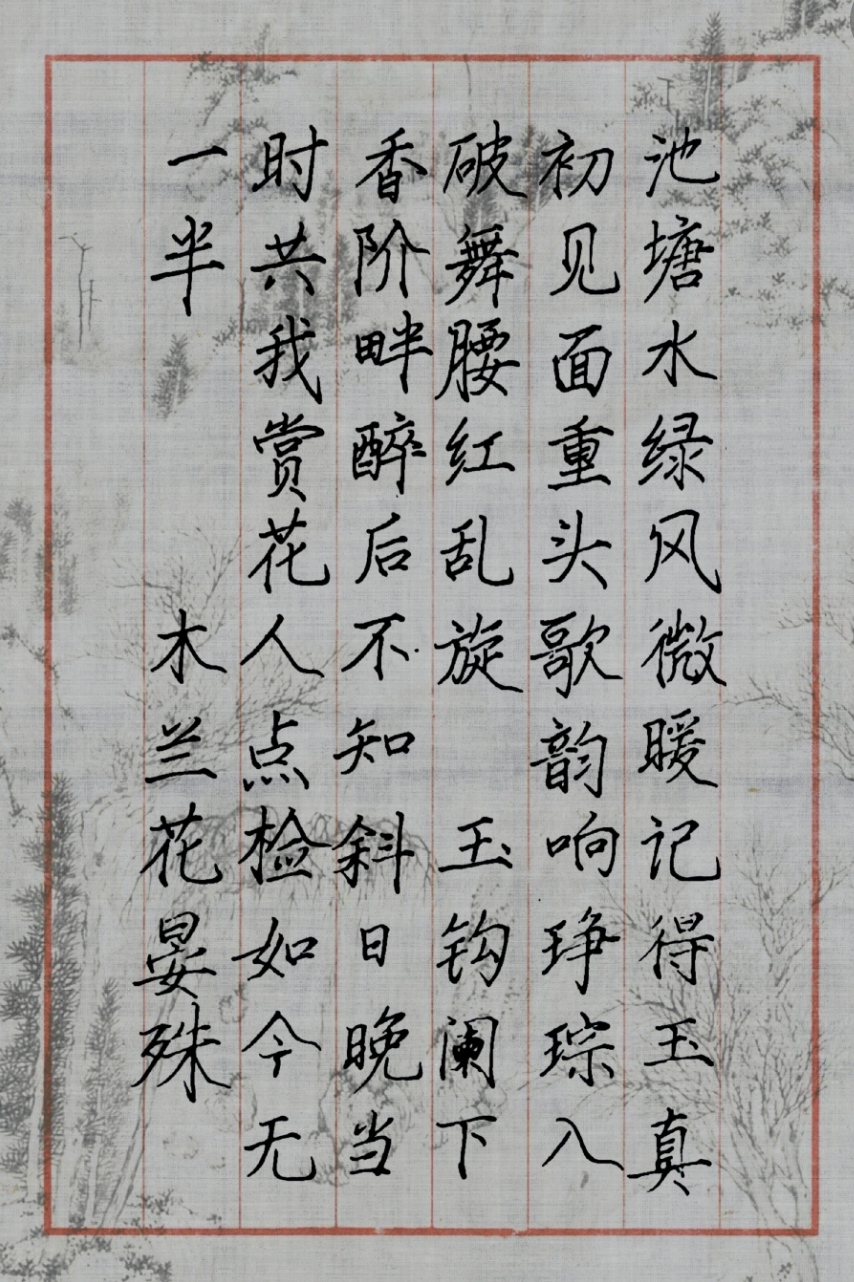 池塘水绿风微暖记得玉真
初见面重头歌韵响琤琮入
破舞腰红乱旋 玉钩阑下
香阶畔醉后不知斜日晚当
时共我赏花人点检如今无
一半 木兰花晏殊